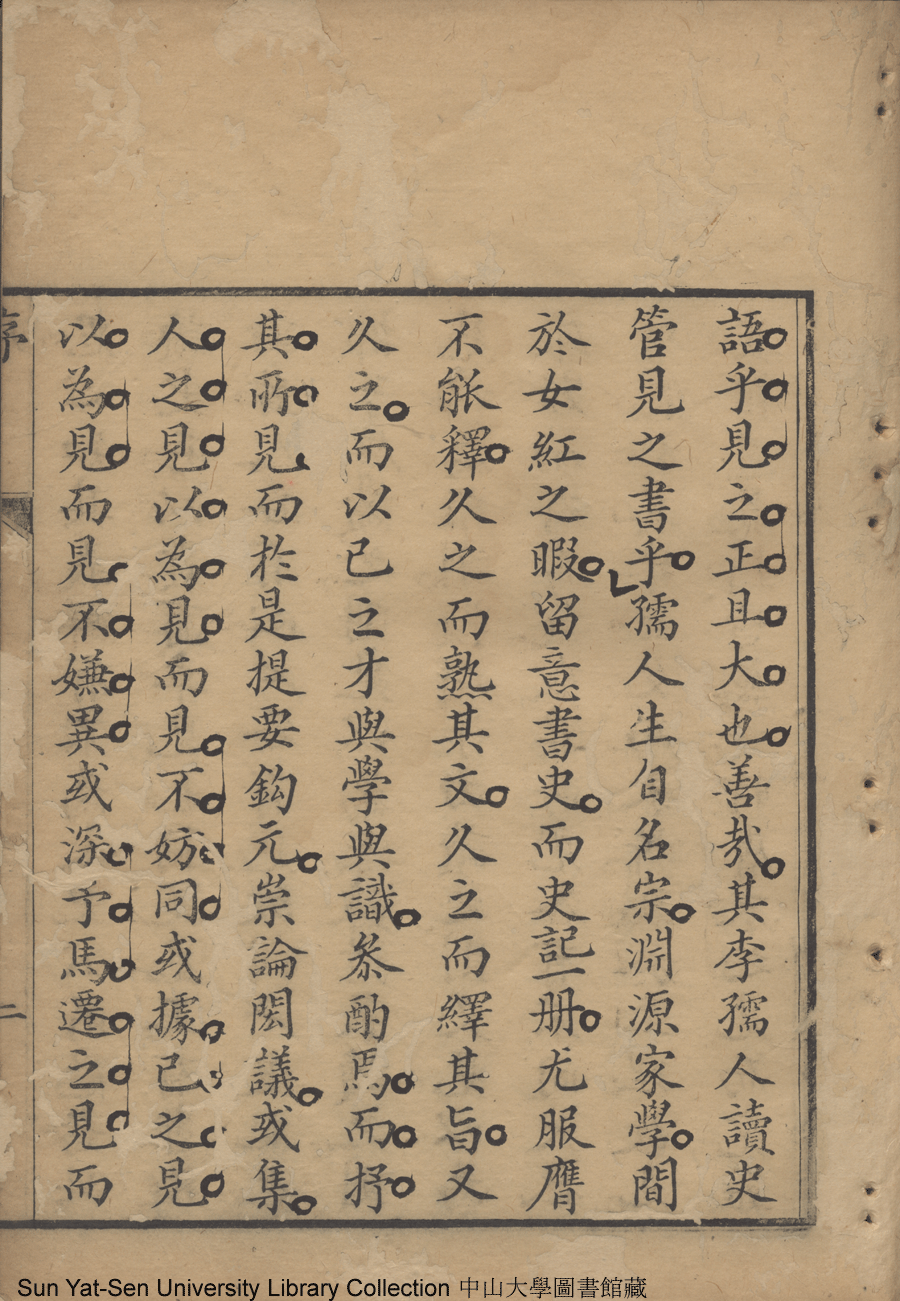 語乎見之正且大也善㦲其李孺人讀史
管見之書乎孺人生自名宗淵源家學間
於女紅之暇留意書史而史記一册尤服膺
不能釋久之而熟其文久之而繹其旨又
久之而以已之才與學與識叅酌焉而抒
其所見而於是提要鈎元崇論閎議或集
人之見以為見而見不妨同或據已之見
以為見而見不嫌異或深予馬遷之見而
序
二
Sun Yat-Sen University Library Collection 中山大學圖書館藏